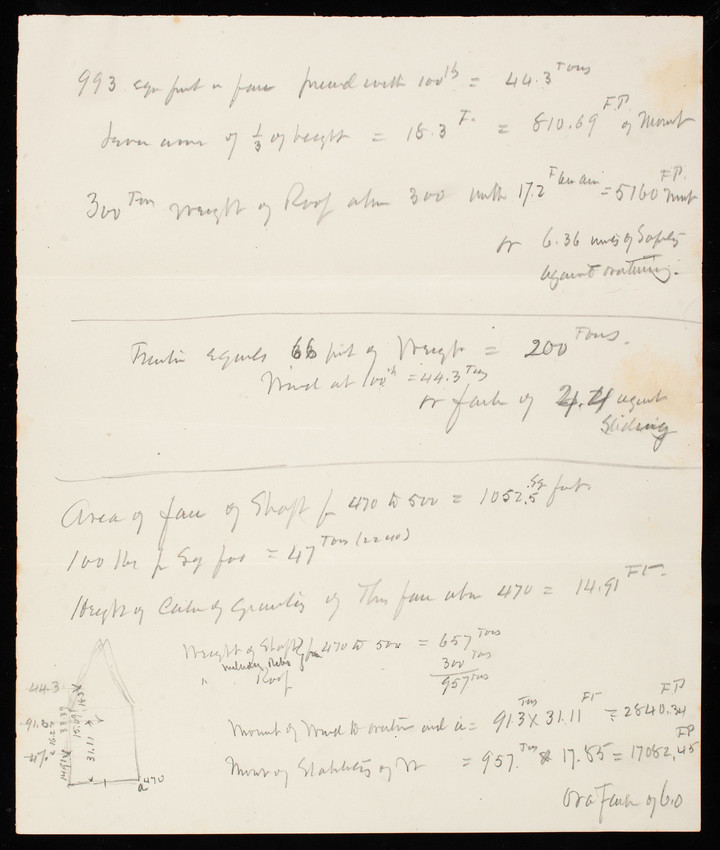 993 sqr feet in face pressed with 100 lb = 44.3 Tons
Lever arm of 1/3 of height = 18.3 F. = 810.69 F.P. of Moment
300 Tons Weight of Roof above 300 with 17.2 F = 5160 F.P. Mmt
or 6.36 of Safety
against overturning.
Friction equals 66 pct of Weight = 200 Tons.
Wind at 100 lb = 44.3 Tons
or factr of 4.4 against
Sliding
Area of face of Shaft fr 470 to 500 = 1052.5 Sq feet.
100 lbs pr Sq foot = 47 Tons (2240)
Height of Centre of Gravity of This face above 470 = 14.91 FT.
Weight of Shaft from 470 to 500 = 657 Tons
including
" Roof 300 Tons
957 Tons
Moment of Wind to overturn around a = 91.3 Tons x 31.11 FT = 2840.34 F.P
Momt of Stability of Wt = 957. Tons x 17.85 = 17082,45 FP
Or a Factr of 6.0
44.3
91.3
47
31.11
a 470